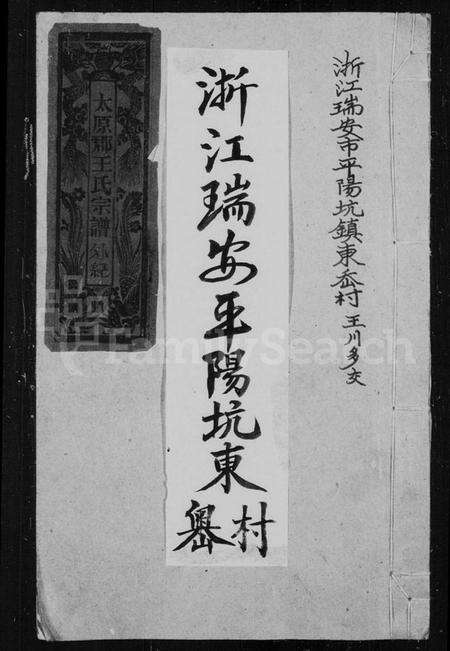 浙江瑞安市平陽坑鎮東岙村 王川多交
浙江瑞安平陽坑東
嶴村
太原郡王氏宗譜
FamilySearch